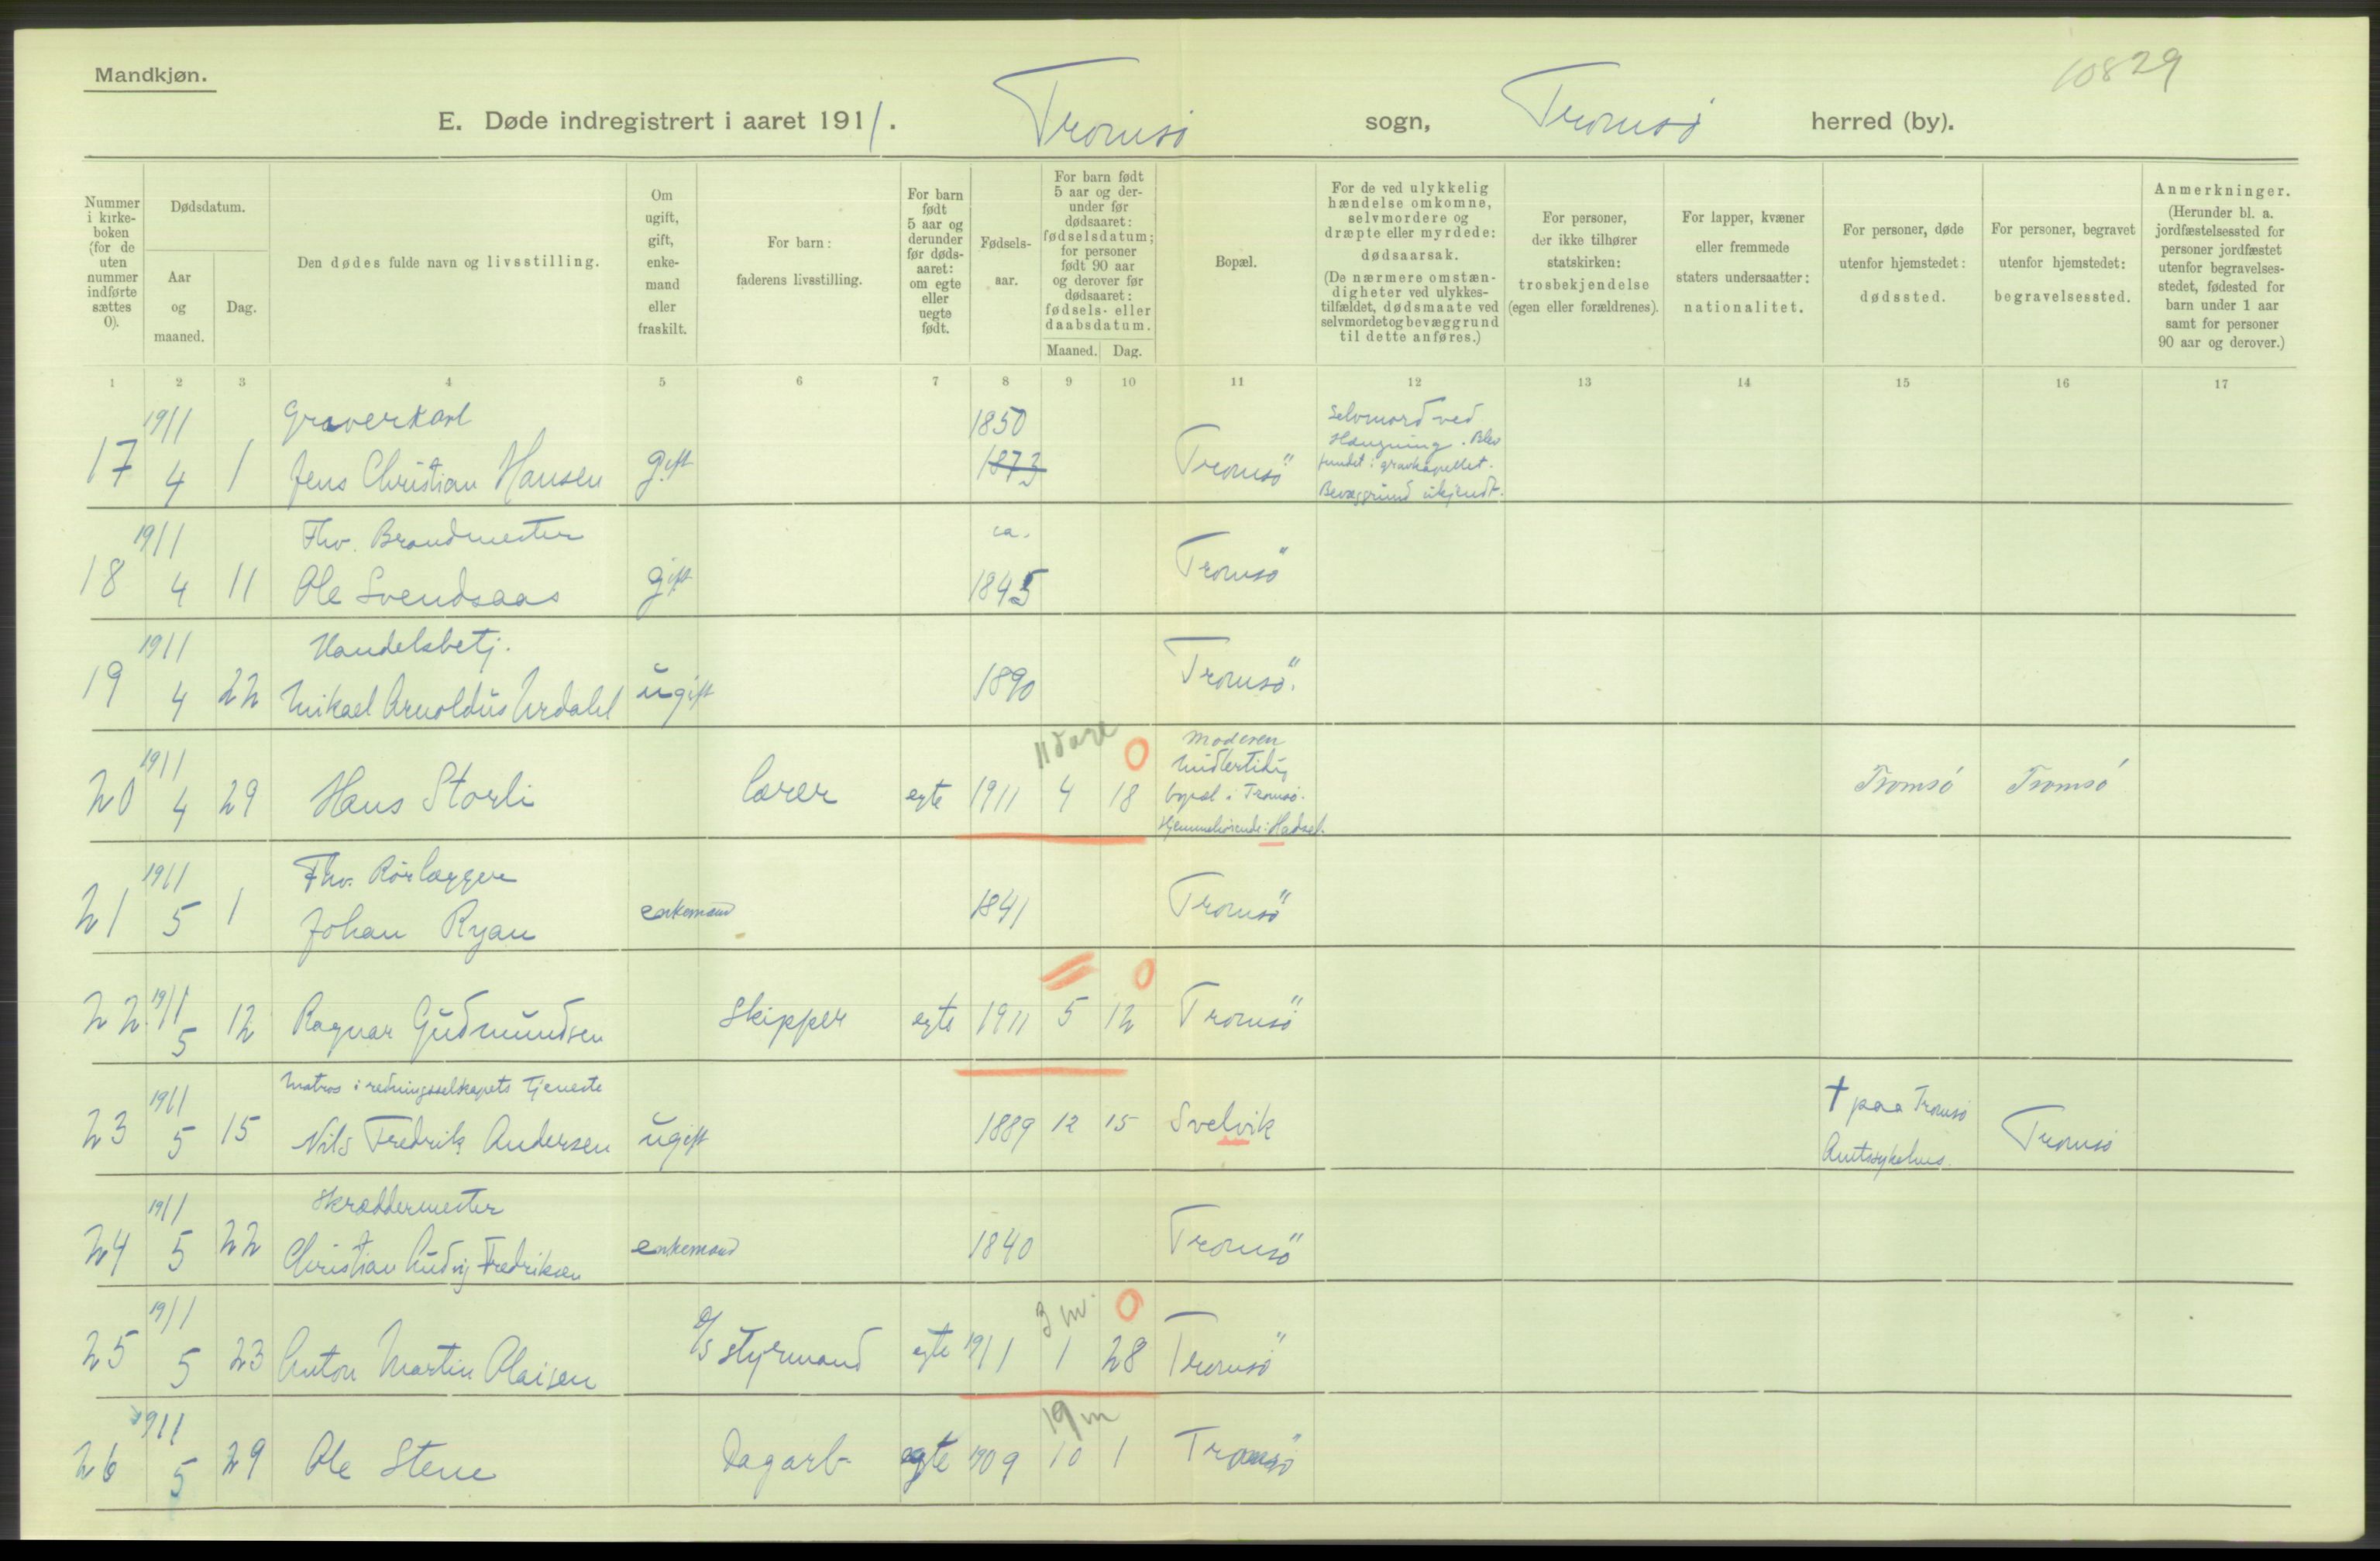 Mandkjøn.
10829
E. Døde indregistrert i aaret 1911. Tromsö sogn, Tromsö herred (by).
Nummer i kirke-boken (for de uten nummer indførte sættes 0).
Dødsdatum.
Aar og maaned.
Dag.
Den dødes fulde navn og livsstilling.
Om ugift, gift, enke-mand eller fraskilt.
For barn: faderens livsstilling.
For barn født 5 aar og derunder før døds-aaret: om egte eller uegte født.
Fødsels-aar.
For barn født 5 aar og der-under før dødsaaret: fødselsdatum; for personer født 90 aar og derover før dødsaaret: fødsels- eller daabsdatum.
Maaned. Dag.
Bopæl.
For de ved ulykkelig hændelse omkomne, selvmordere og dræpte eller myrdede: dødsaarsak. (De nærmere omstæn-digheter ved ulykkes-tilfældet, dødsmaate ved selvmord og bevæggrund til dette anføres.)
For personer, der ikke tilhører statskirken: trosbekjendelse (egen eller forældrenes).
For lapper, kvæner eller fremmede staters undersaatter: nationalitet.
For personer, døde utenfor hjemstedet: dødssted.
For personer, begravet utenfor hjemstedet: begravelsessted.
Anmerkninger. (Herunder bl. a. jordfæstelsessted for personer jordfæstet utenfor begravelses-stedet, fødested for barn under 1 aar samt for personer 90 aar og derover.)
1 2 3 4 5 6 7 8 9 10 11 12 13 14 15 16 17
17 1911 4 1 Graverkarl Jens Christian Hansen gift 1850 1873 Tromsö Selvmord ved Hængning. Blev fundet i gravkapellet. Bevæggrund ukjendt.
18 1911 4 11 Fhv. Brandmester Ole Svendsaas gift ca. 1845 Tromsö
19 1911 4 22 Handelsbetj. Mikael Arnoldus Urdahl ugift 1890 Tromsö.
20 1911 4 29 Hans Storli lærer egte 1911 4 18 11 dage 0 Moderen midlertidig bopæl i Tromsö. Hjemmehörende: Hadsel. Tromsö Tromsö
21 1911 5 1 Fhv. Rörlægger Johan Ryan enkemand 1841 Tromsö
22. 1911 5 12 Ragnar Gudmundsen Skipper egte 1911 5 12 0 Tromsö
23 1911 5 15 Matros i redningsselskapets tjeneste Nils Fredrik Andersen ugift 1889 12 15 Svelvik † paa Tromsö Amtssykehus. Tromsö
24 1911 5 22 Skræddermester Christian Ludvig Fredriksen enkemand 1840 Tromsö
25 1911 5 23 Anton Martin Olaisen styrmand egte 1911 1 28 3 m. 0 Tromsö
26 1911 5 29 Ole Stene Dagarb. egte 1909 10 1 19 m Tromsö